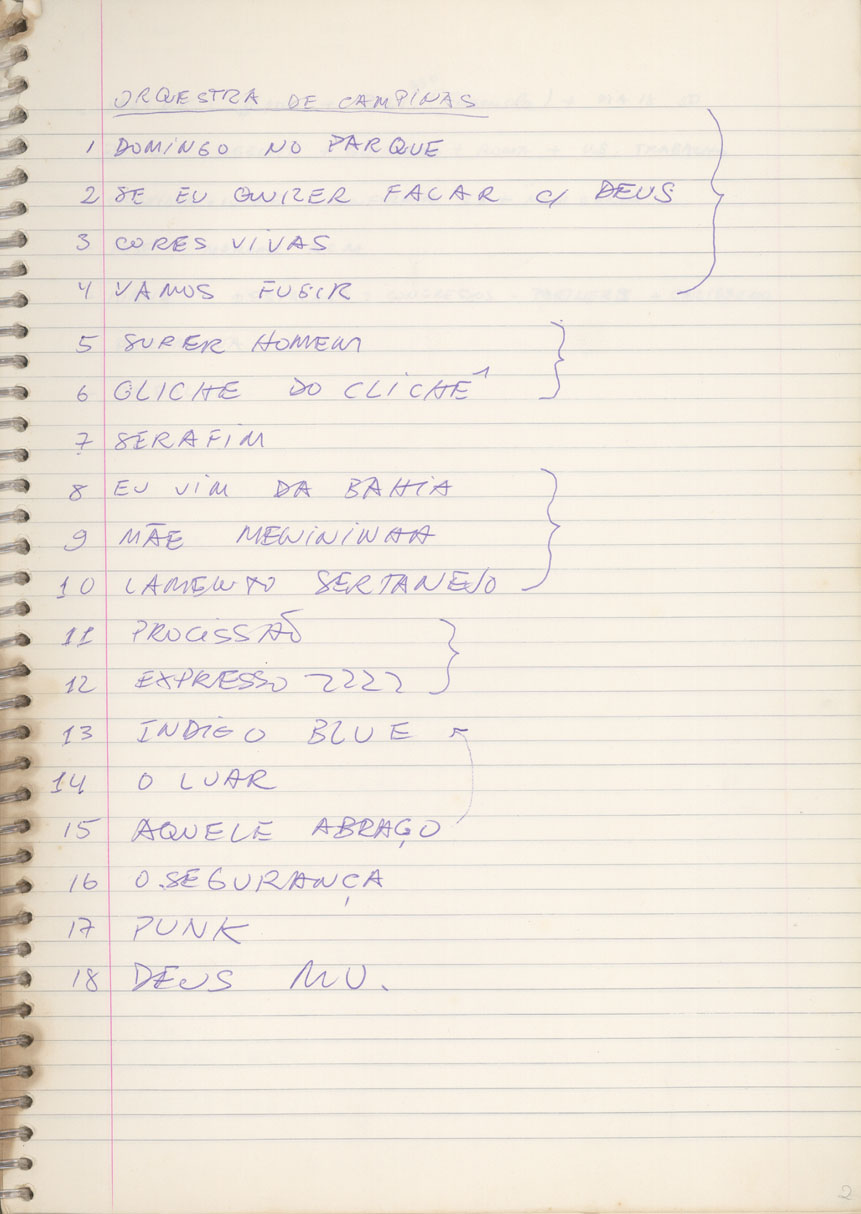 ORQUESTRA DE CAMPINAS
1 DOMINGO NO PARQUE
2 SE EU QUIZER FALAR C/ DEUS
3 CORES VIVAS
4 VAMOS FUGIR
5 SUPER HOMEM
6 CLICHE DO CLICHÊ
7 SERAFIM
8 EU VIM DA BAHIA
9 MÃE MENININHA
10 LAMENTO SERTANEJO
11 PROCISSÃO
12 EXPRESSO 2222
13 INDIGO BLUE
14 O LUAR
15 AQUELE ABRAÇO
16 O SEGURANÇA
17 PUNK
18 DEUS MU.
2